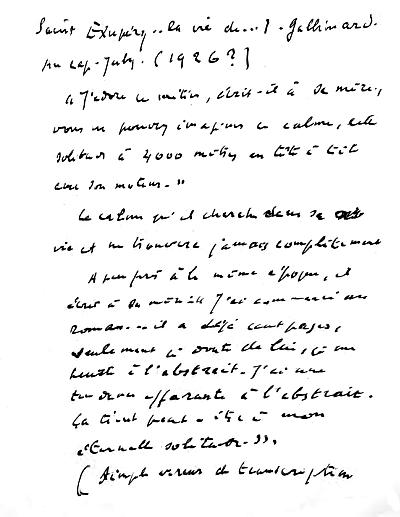 Saint Exupéry.. la vie de...). Gallimard.
au cap-Juby. (1926?)
" J'adore ce métier, écrit-il à sa mère,
vous ne pouvez imaginer ce calme, cette
solitude à 4000 mètres en tête à tête
avec son moteur. "
Le calme qu'il cherche dans sa
vie et ne trouvera jamais complètement
A peu près à la même époque, il
écrit à sa mère J'ai commencé un
roman... il a déjà cent pages,
seulement à de
à l'abstrait. J'ai une
tendance effarante à l'abstrait.
Ça tient peut-être à mon
éternelle solitude. ".
( simple erreur de transcription